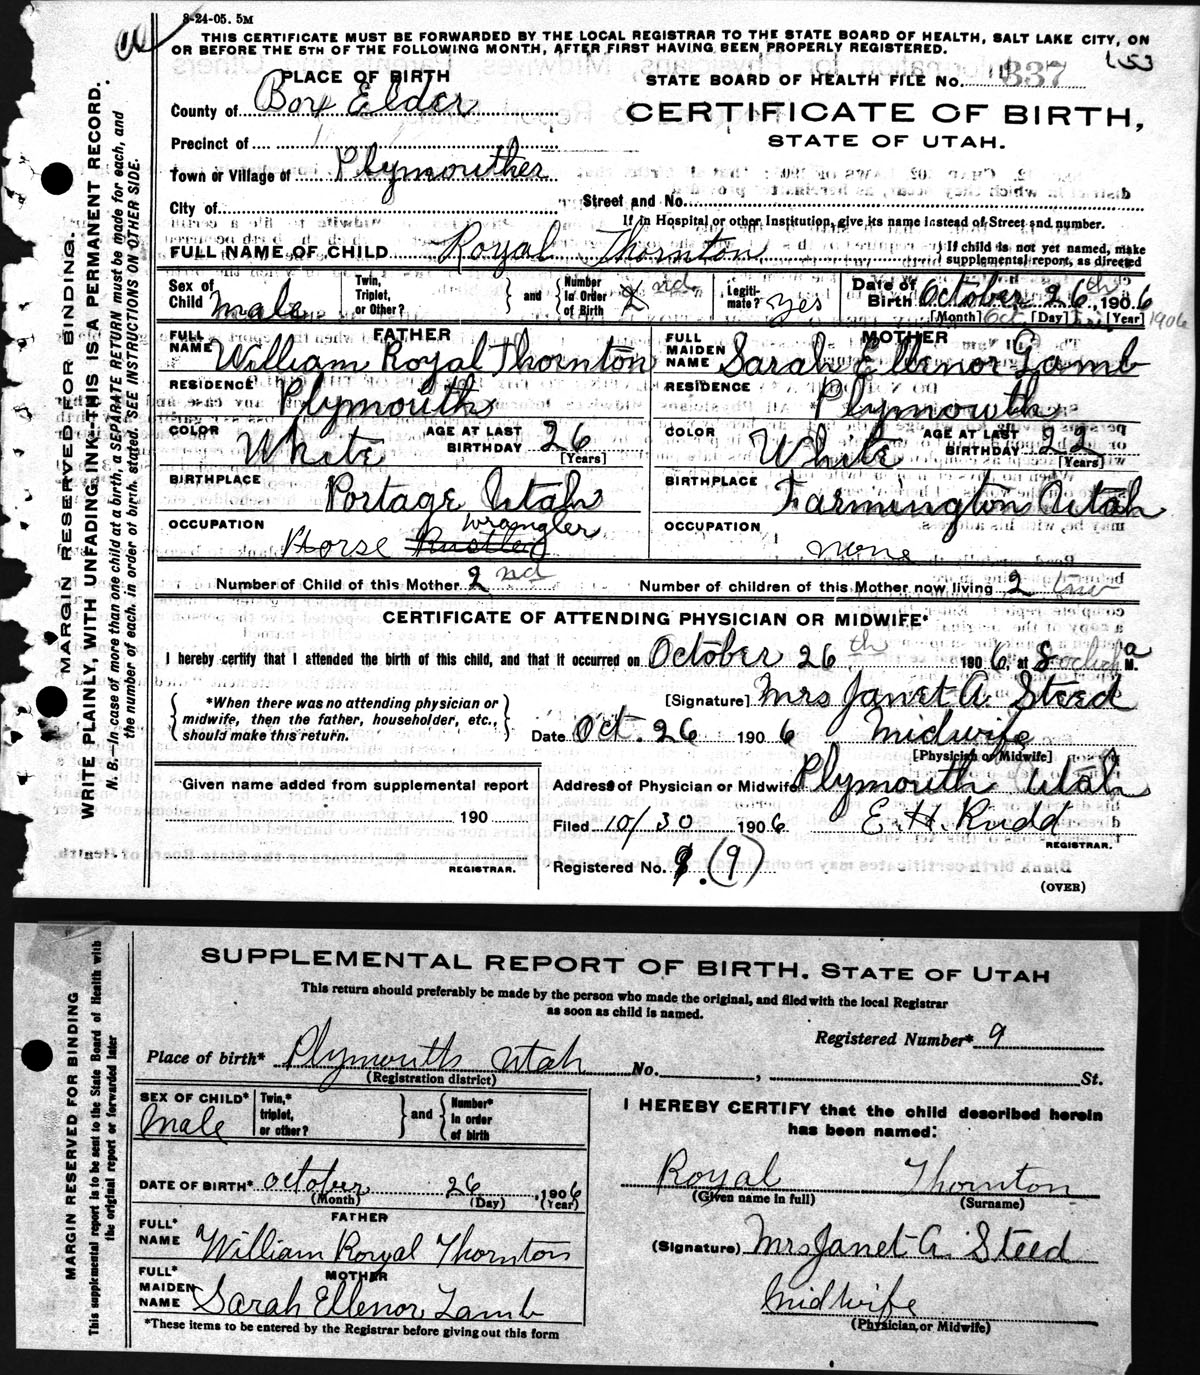 8-24-05. 5M
THIS CERTIFICATE MUST BE FORWARDED BY THE LOCAL REGISTRAR TO THE STATE BOARD OF HEALTH, SALT LAKE CITY, ON
OR BEFORE THE 5TH OF THE FOLLOWING MONTH, AFTER FIRST HAVING BEEN PROPERLY REGISTERED.
153
PLACE OF BIRTH
STATE BOARD OF HEALTH FILE No. 337
County of Box Elder
CERTIFICATE OF BIRTH,
STATE OF UTAH.
Precinct of
Town or Village of Plymouther
City of
Street and No.
If in Hospital or other Institution, give its name instead of Street and number.
FULL NAME OF CHILD Royal Thornton
If child is not yet named, make
supplemental report, as directed
Sex of Child male
Twin, Triplet, or Other? } and { Number In Order of Birth 2 nd
Legiti-mate? yes
Date of Birth October 26th, 1906
[Month] Oct [Day] [Year] 1906
FATHER
FULL NAME William Royal Thornton
MOTHER
FULL MAIDEN NAME Sarah Ellenor Lamb
RESIDENCE Plymouth
RESIDENCE Plymouth
COLOR White AGE AT LAST BIRTHDAY 26 [Years]
COLOR White AGE AT LAST BIRTHDAY 22 [Years]
BIRTHPLACE Portage Utah
BIRTHPLACE Farmington Utah
OCCUPATION Horse Rustler wrangler
OCCUPATION none
Number of Child of this Mother 2 nd
Number of children of this Mother now living 2 two
CERTIFICATE OF ATTENDING PHYSICIAN OR MIDWIFE*
I hereby certify that I attended the birth of this child, and that it occurred on October 26 th 1906, at 8 oclock a M.
{ *When there was no attending physician or
midwife, then the father, householder, etc.,
should make this return. }
[Signature] Mrs Janet A. Steed
Date Oct. 26 1906 Midwife
[Physician or Midwife]
Given name added from supplemental report
190
REGISTRAR.
Address of Physician or Midwife Plymouth Utah
Filed 10/30 1906 E. H. Rudd
REGISTRAR.
Registered No. 9. (9)
(OVER)
MARGIN RESERVED FOR BINDING.
WRITE PLAINLY, WITH UNFADING INK--THIS IS A PERMANENT RECORD.
N. B.--In case of more than one child at a birth, a SEPARATE RETURN must be made for each, and
the number of each, in order of birth, stated. SEE INSTRUCTIONS ON OTHER SIDE.
SUPPLEMENTAL REPORT OF BIRTH. STATE OF UTAH
This return should preferably be made by the person who made the original, and filed with the local Registrar
as soon as child is named.
Registered Number* 9
Place of birth* Plymouth Utah No. , St.
(Registration district)
SEX OF CHILD* Male
Twin,* triplet, or other? } and { Number* in order of birth
I HEREBY CERTIFY that the child described herein
has been named:
DATE OF BIRTH* October 26, 1906
(Month) (Day) (Year)
Royal Thornton
(Given name in full) (Surname)
FATHER
FULL* NAME William Royal Thornton
(Signature) Mrs Janet A. Steed
MOTHER
FULL* MAIDEN NAME Sarah Ellenor Lamb
Midwife
(Physician, or Midwife)
*These items to be entered by the Registrar before giving out this form
MARGIN RESERVED FOR BINDING
This supplemental report is to be sent to the State Board of Health with
the original report or forwarded later